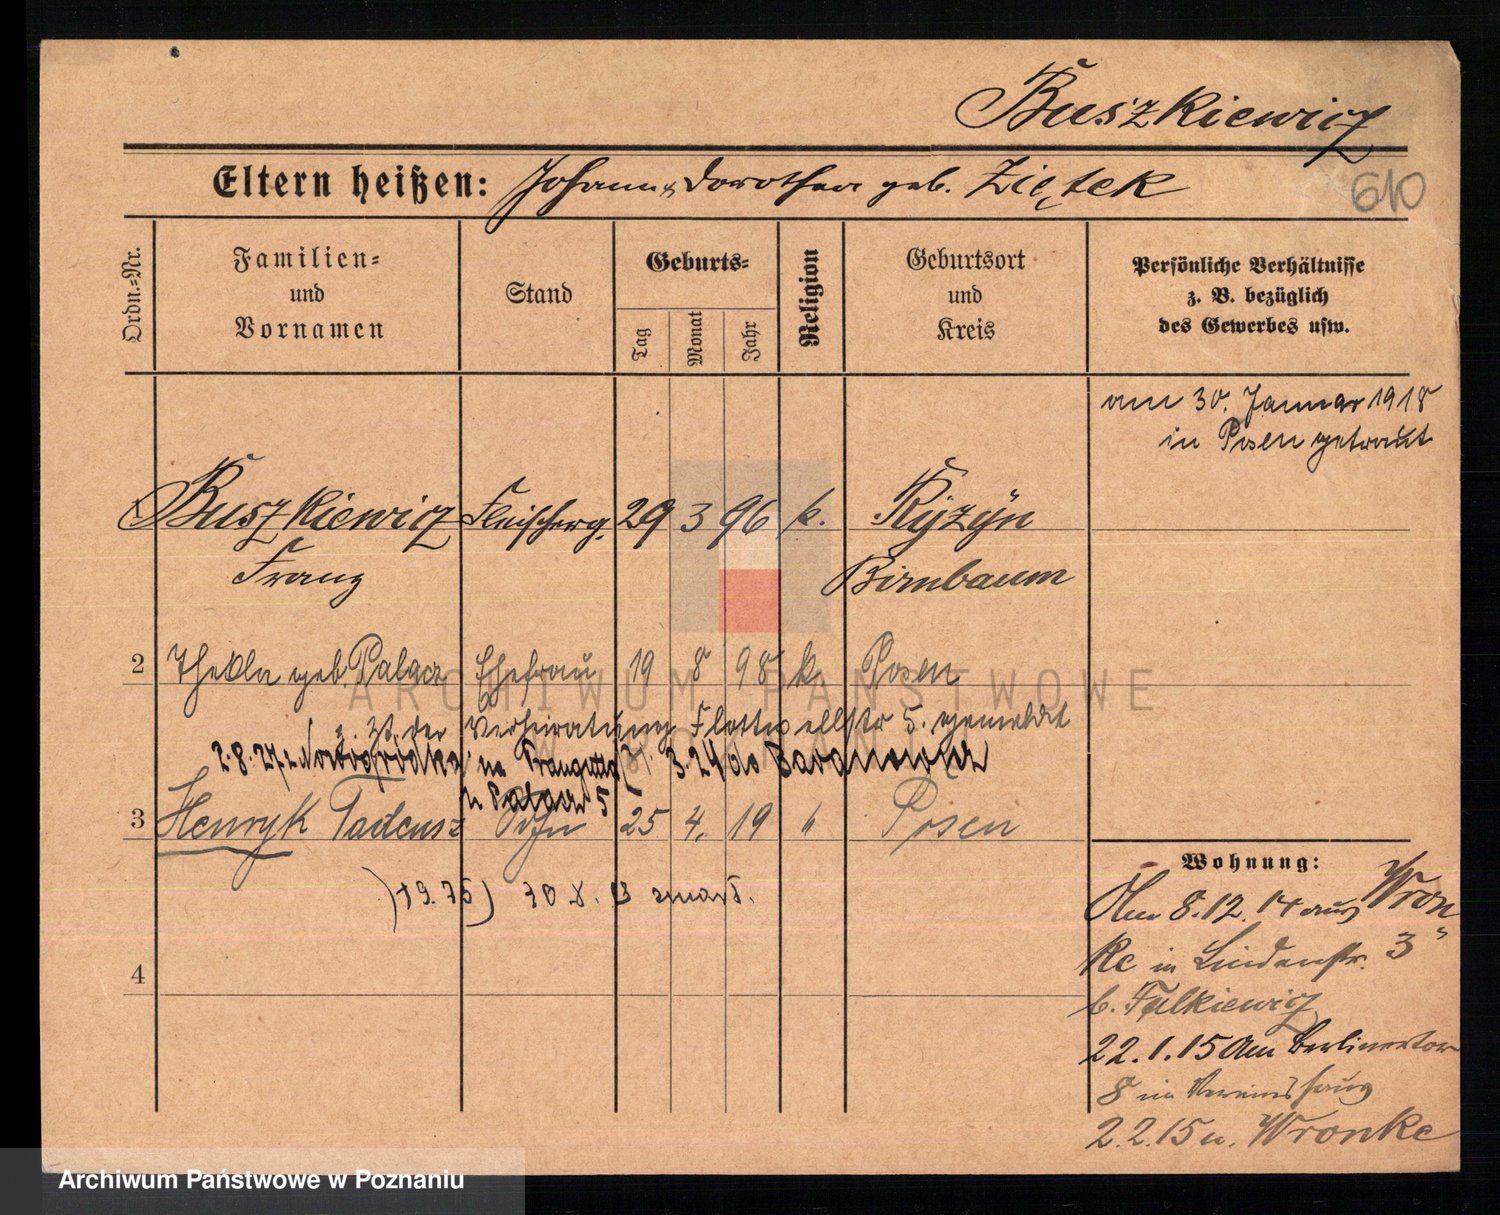 Buszkiewicz
Eltern heißen: Johann u. Dorothea geb. Ziętek
610
Ordn.=Nr.
Familien=
und
Vornamen
Stand
Geburts=
Tag
Monat
Jahr
Religion
Geburtsort
und
Kreis
Persönliche Verhältnisse
z. B. bezüglich
des Gewerbes usw.
am 30. Januar 1918
in Posen getraut
Buszkiewicz Fleischerg. 29 3 96 k. Ryzyn
Franz Birnbaum
2 Thekla geb. Palacz Ehefrau 19 8 98 k. Posen
z. Zt. der Verheiratung Flottwellstr 5. gemeldet
2.8.27 z Nowogródka na 3.24 do Baranowicz
Palacz 5
3 Henryk Tadeusz Sohn 25 4. 19 " Posen
4
Wohnung:
Am 8.12.14 aus Wron
ke in Lindenstr. 3
b. Falkiewicz
22.1.15 Am Berlinertor
8 im Vereinshaus
2.2.15 n. Wronke
ARCHIWUM PAŃSTWOWE
W POZNANIU
Archiwum Państwowe w Poznaniu